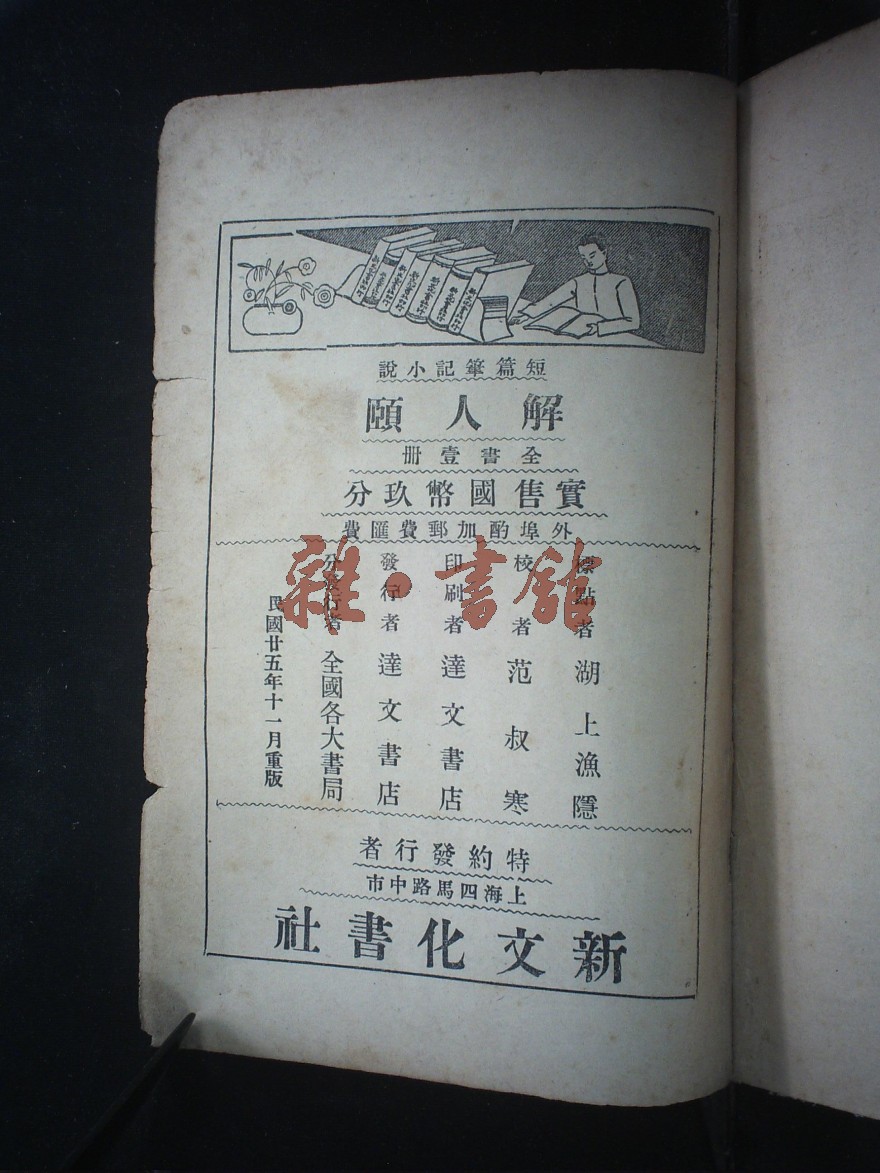 短篇筆記小說
解人頤
全書壹册
實售國幣玖分
外埠酌加郵費匯費
標點者 湖上漁隱
校者 范叔寒
印刷者 達文書店
發行者 達文書店
分發行者 全國各大書局
民國廿五年十一月重版
特約發行者
上海四馬路中市
新文化書社
雜·書館